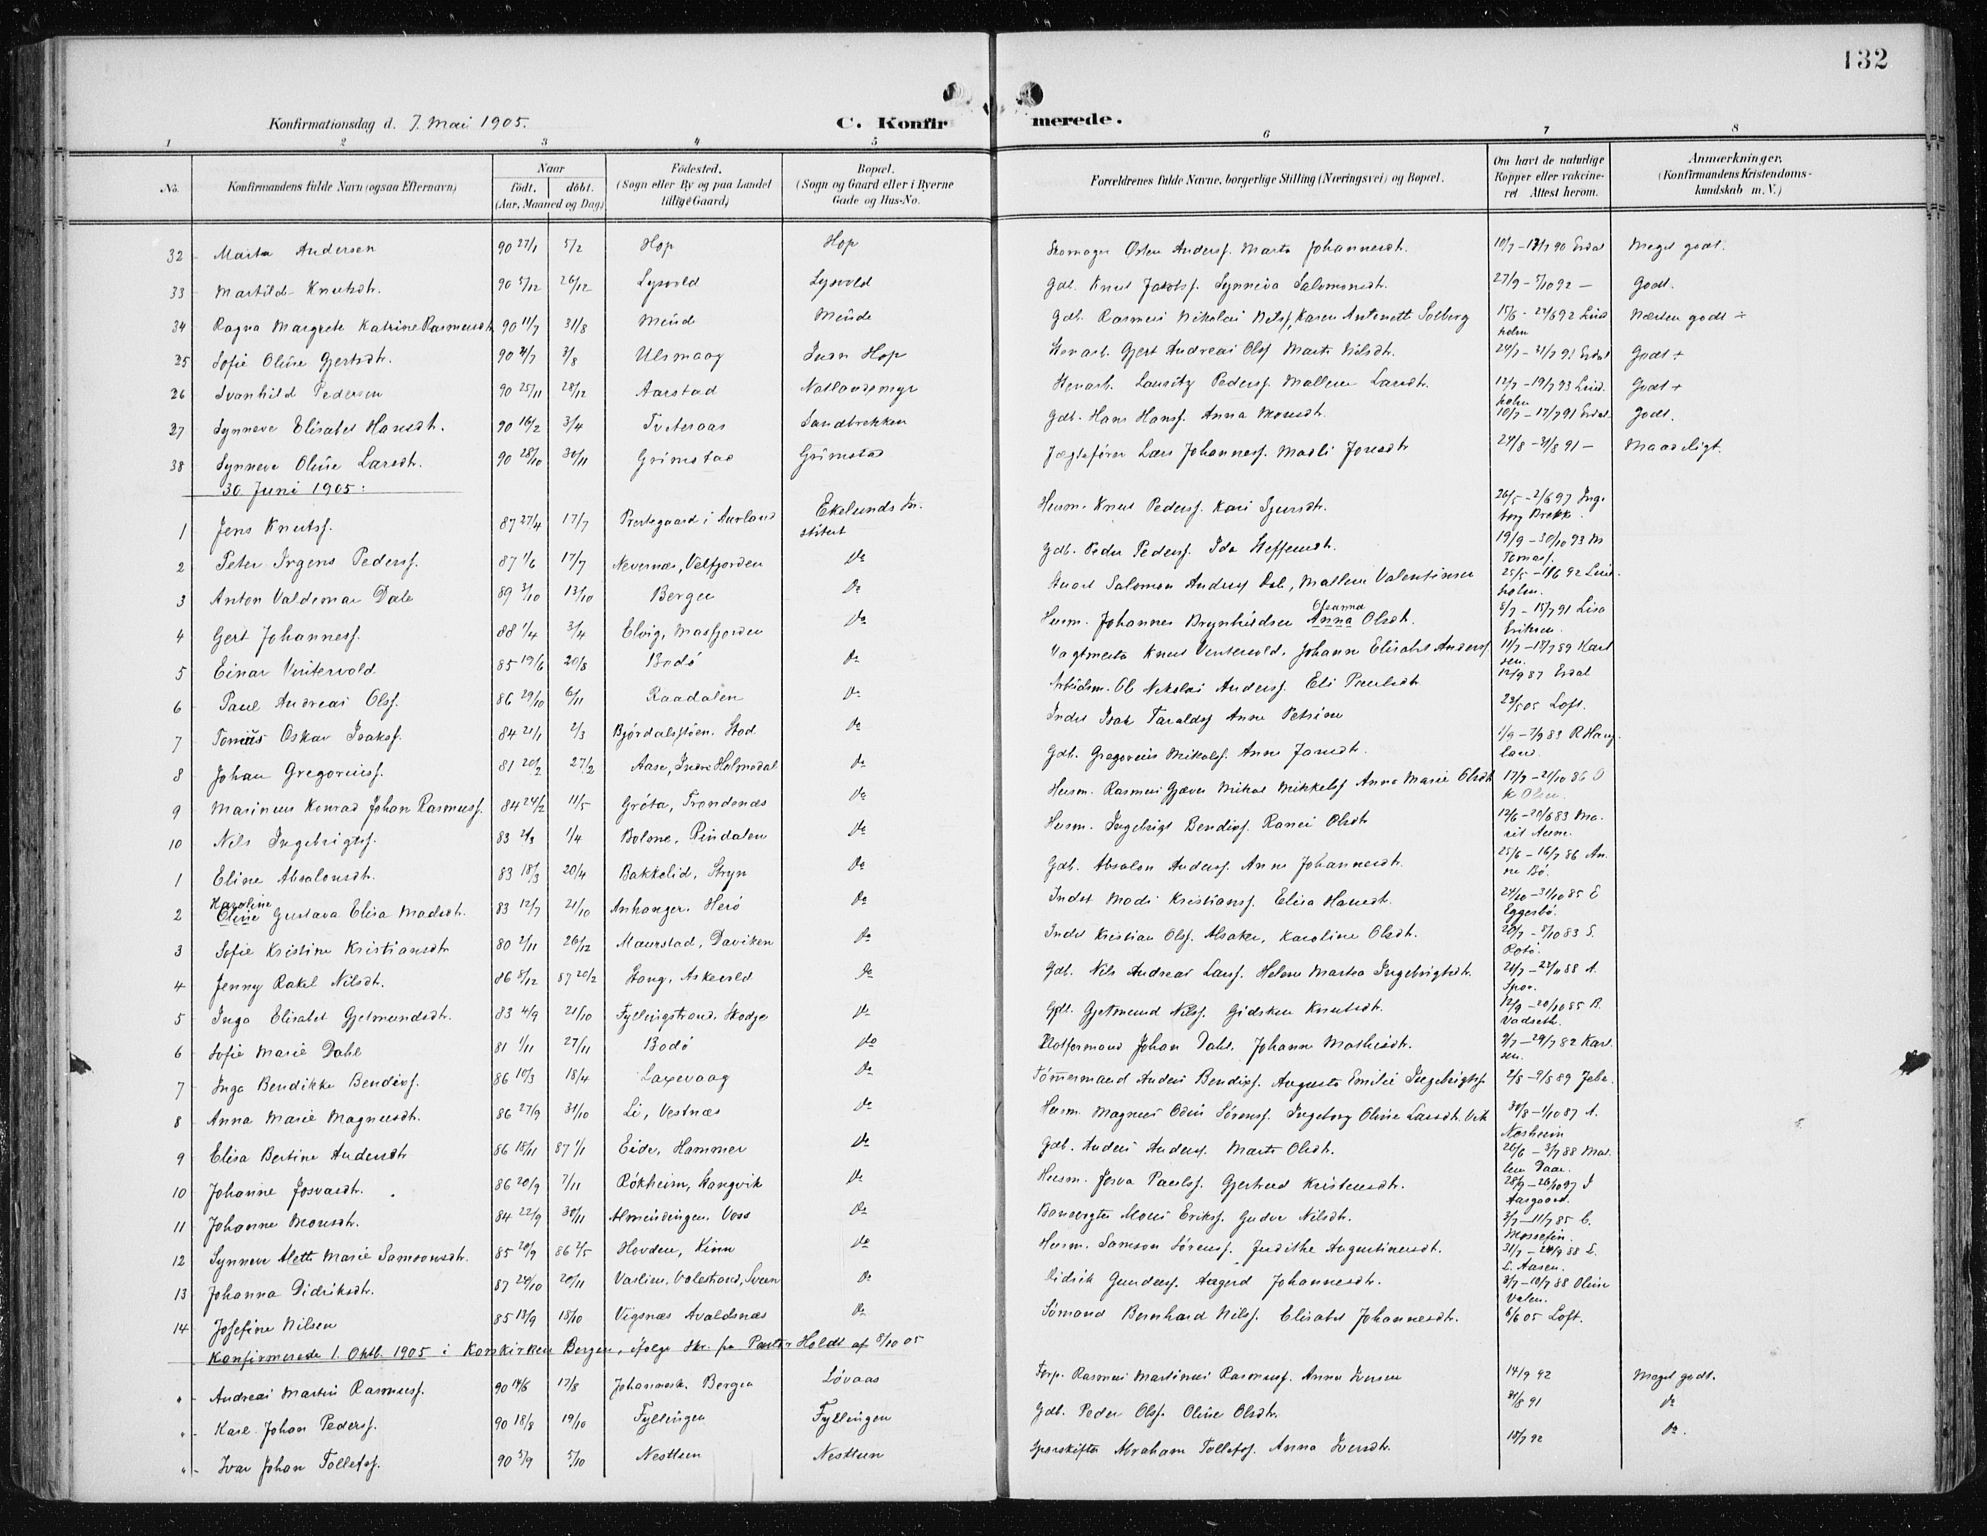 132
Konfirmationsdag d. 7. Mai 1905. C. Konfirmerede.
1 2 3 4 5 6 7 8
No. Konfirmandens fulde Navn (ogsaa Efternavn) Naar født. døbt. (Aar, Maaned og Dag) Fødested. (Sogn eller By og paa Landet tillige Gaard) Bopæl. (Sogn og Gaard eller i Byerne Gade og Hus-No. Forældrenes fulde Navne, borgerlige Stilling (Næringsvei) og Bopæl. Om havt de naturlige Kopper eller vaccineret Attest herom. Anmærkninger. (Konfirmandens Kristendomskundskab m. V.)
32 Marta Andersen 90 27/1 5/2 Hop Hop Skomager Anders. Marta Johannesdt. 90 Erdal Meget godt.
33 Martild Knutsdt. 90 5/12 26/12 Lysvold Lysvold Gdb. Knut Jakobs. Synneva Salomonsdt. 27/9 – 5/10 92 – Godt.
34 Ragna Margrete Katrine Rasmusdt. 90 11/7 31/8 Meüde Gdb. Rasmus Nikolai Karen Antonette Solberg 92 Lindholm Næsten godt ÷
35 Sofie Oline Gjertsdt. 90 3/8 Ulsmaag Indre Hop Gjert Andreas Olsf. Marta Nilsdt. 24/7 – 31/7 91 Erdal Godt +
36 Svanhild Pedersen 90 25/11 28/12 Aarstad Natlandsmyr Lauritz Pedersf. Mallene Larsdt. 12/7 – 19/7 93 Lindholm Godt +
37 Synneve Elisabet Hansdt. 90 16/2 3/4 Tveteraas Sandbrekken Gdb. Hans Hansf. Anna Monsdt. 10/7 – 17/7 91 Erdal Godt.
38 Synneve Oline Larsdt. 90 28/10 30/11 Grimstad Grimstad Jægtefører Lars Johannesf. Madli Jonsdt. 24/8 – 31/8 91 – Maadeligt.
30 Juni 1905:
1 Jens Knutsf. 87 27/4 17/7 Prestegaard i Aurland Ekelunds Institut Husm. Knut Pedersf. Kari Sjursdt. 26/5 – 2/6 97 Ingeborg Brekk.
2 Peter Irgens Pedersf. 87 1/6 17/7 Nevernæs, Velfjorden Do Gdb. Peder Pedersf. Ida Steffensdt. 19/9 – 30/10 93 M Tomasf.
3 Anton Valdemar Dale 89 3/10 13/10 Bergen Do Salomon Andersf. Dale, Mallene Valentinsen 92 Lindholm.
4 Gert Johannesf. 88 1/4 3/4 Elvig, Masfjorden Do Husm. Johannes Brynhildsen Oleanna Anna Olsdt. 8/7 – 15/7 91 Lisa Eriksen.
5 Einar Vintervold 85 19/6 20/8 Bodö Do Vagtmester Knut Vintervold, Johanne Elisabet Andersf. 11/7 – 18/7 89 Karlsen.
6 Paul Andreas Olsf. 86 29/10 6/11 Raadalen Do Arbeidsm. Ole Nikolai Andersf. Eli Paulsdt. 12/9 87 Erdal
7 Tomüs Oskar Isaksf. 84 21/1 2/3 Björdalsstöen. Stod Do Indst Isak Taraldsf. Anne Petrine 23/5 05 Loft.
8 Johan Gregoriusf. 81 20/2 27/2 Aase, Indre Holmedal Do Gdb. Gregorius Mikalsf. Anne Jansdt. 1/9 – 7/9 83 R Haugland.
9 Marinus Konrad Johan Rasmusf. 84 24/2 11/5 Gröta, Trondenæs Do Husm. Rasmus Gjæver Mikal Mikkelsf. Anne Marie Olsdt. 17/9 – 21/10 86 O K Olsen.
10 Nils Ingebrigtsf. 83 1/4 Bolme, Rindalen Do Husm. Ingebrigt Bendixf. Ranei Olsdt. 83 Marit Aune.
1 Eline Absalonsdt. 83 18/3 20/4 Bakkelid, Stryn Do Gdb. Absalon Andersf. Anne Johannesdt. 25/6 – 16/7 86 Anne Bö.
2 Karoline Oline Gustava Elisa Madsdt. 83 12/7 21/10 Anhanger. Herö Do Indst Mads Kristiansf. Elisa Hansdt. 24/10 – 31/10 85 E Eggesbö.
3 Sofie Kristine Kristiansdt. 80 2/11 26/12 Maurstad, Daviken Do Indst Kristian Olsf. Alsaker, Karoline Olsdt. 83 S.
4 Jenny Rakel Nilsdt. 86 8/12 87 20/2 Stong, Askevold Do Gdb. Nils Andreas Larsf. Helene Martea Ingebrigtsdt. 88 A. Spor.
5 Inga Elisabet Gjetmundsdt. 83 4/9 21/10 Fyllingstrand. Skodje Do Gdb. Gjetmund Nilsf. Gidsken Knutsdt. 12/9 – 20/10 85 B. Vadseth.
6 Sofie Marie Dahl 81 1/11 27/11 Bodö Do Platformand Johan Dahl. Johanne Mathisdt. 9/7 – 29/7 82 Karlsen.
7 Inga Bendikke Bendixf. 86 10/3 18/4 Laxevaag Do Tømmermand Anders Bendixf. Augusta Emilie Ingebrigtsf. 2/8 – 9/8 89
8 Anna Marie Magnusdt. 86 27/9 31/10 Li, Vestnæs Do Husm. Magnus Odin Sörensf. Ingeborg Oline Larsdt. Vik 30/8 – 1/10 87 A. Nesheim
9 Elisa Bertine Andersdt 86 18/11 87 1/1 Eide, Hammer Do Gdb. Anders Andersf. Marte Olsdt. 26/6 – 3/7 88
10 Johanne Josvasdt. 86 20/9 7/11 Rökheim, Stangvik Do Husm. Josva Paulsf. Gjertrud Kristensdt. 28/9 – 26/10 97 I Aasgaard.
11 Johanne Monsdt. 84 22/9 30/11 Almendingen. Voss Do Mons Eriksf. Gudve Nilsdt. 3/7 – 11/7 85
12 Synneve Alette Marie Samsonsdt. 85 20/9 86 2/5 Hovden, Kinn Do Husm. Samson Sörensf. Judithe Augustinusdt. 88 L. L. Aasen.
13 Johanna Didriksdt. 87 24/10 20/11 Vaslien. Valestrand, Sveen Do Didrik Gundersf. Aagerd Johannesdt. 3/7 – 10/7 88 Oline Valen.
14 Josefine Nilsen 85 13/9 18/10 Vigsnæs Avaldsnæs Do Sömand Bernhard Nilsf. Elisabet Johannesdt. 6/6 05 Loft.
Konfirmerede 1. Oktb. 1905 i Korskirken Bergen, ifølge Skr. fra Pastor Holdt af 8/10 05
" Andreas Martin Rasmusf. 90 14/6 17/8 Johannesk. Bergen Løvaas Rasmus Martinus Rasmusf. Anna Iversen 14/9 92 Meget godt.
" Karl Johan Pedersf. 90 18/8 19/10 Fyllingen Fyllingen Gdb. Peder Olsf. Oline Olsdt. 31/8 91 Do
" Ivar Johan Tollefsf. 90 5/9 5/10 Nesttun Nesttun Sporskifter Abraham Tollefsf. Anna Iversdt. 18/7 92 Do.